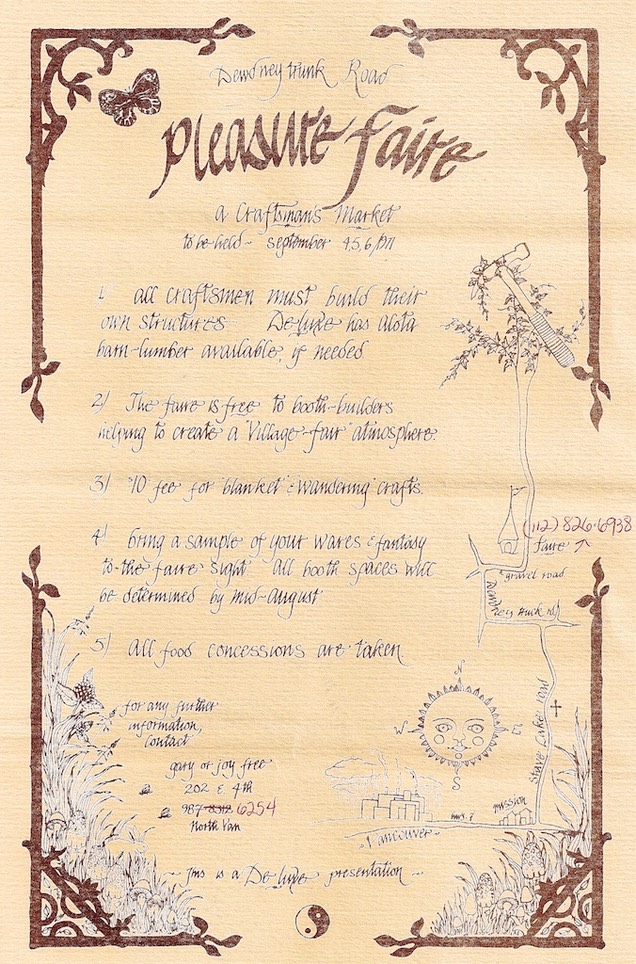 Dewdney trunk Road
pleasure faire
a Craftsman's Market
to be held - september 4,5,6/71
1) all craftsmen must build their
own structures De Luxe has alota
barn-lumber available, if needed
2) The faire is free to booth-builders
helping to create a 'Village-fair' atmosphere.
3) $10 fee for 'blanket' & 'wandering' crafts.
4) bring a sample of your wares & fantasy
to the faire sight All booth spaces will
be determined by mid-August
5) All food concessions are taken
(112) 826-6938
faire
gravel road
Dewdney trunk rd
Stave Lake road
for any further
information,
contact
gary or joy free
202 E 4th
987- 6254
North Van
N
W
E
S
mission
hwy. 7
Vancouver
This is a De Luxe presentation